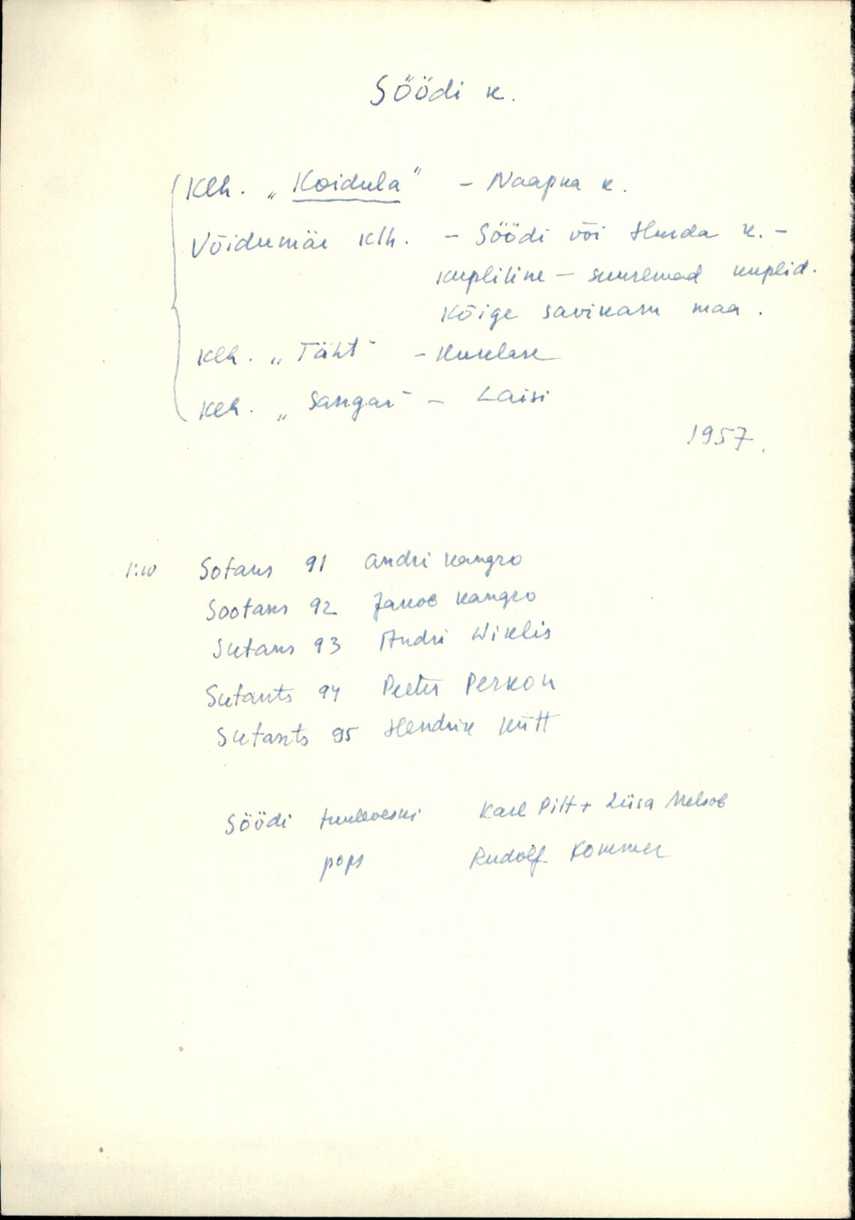 Söödi k.
Klh. „Koidula" – Naapka k.
Võidumäe klh. – Söödi või Hurda k. –
kupliline – suuremad kuplid.
Kõige savikam maa.
Klh. „Täht" –
Klh. „Sangar" – Laisi
1957.
Sotans 91 Andri Kangro
Sootans 92 Jakob Kangro
Sutans 93 Andri Wiklis
Sutants 94 Peeter Perkon
Sutants 95 Hendrik Kütt
Söödi tuuleveski Karl Pilt + Liisa
pops Rudolf Kommer